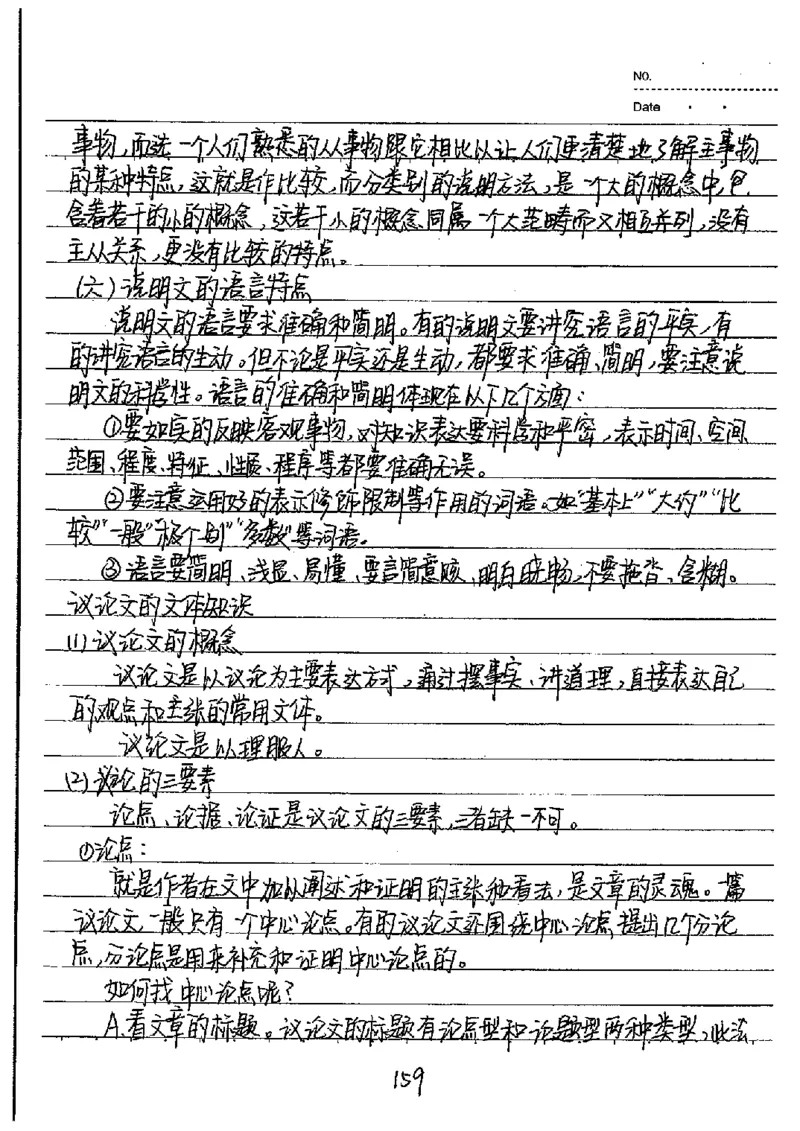 NO.
Date
事物,而选一个人们熟悉的从事物跟它相比以让人们更清楚地了解主事物
的某种特点,这就是作比较,而分类别的说明方法,是一个大的概念中包
含着若干的小的概念,这若干小的概念同属一个大范畴而又相互并列,没有
主从关系,更没有比较的特点。
(六)说明文的语言特点
说明文的语言要求准确和简明。有的说明文要讲究语言的平实,有
的讲究语言的生动。但不论是平实还是生动,都要求准确、简明,要注意说
明文的科学性。语言的准确和简明体现在以下几个方面:
①要如实的反映客观事物,对知识表达要科学和严密,表示时间、空间、
范围、程度、特征、性质、程序等都要准确无误。
②要注意运用好的表示修饰限制等作用的词语。如"基本上""大约""比
较""一般""极个别""多数"等词语。
③语言要简明、浅显、易懂、要言简意赅,明白晓畅,不要拖沓、含糊。
议论文的文体知识
(1)议论文的概念
议论文是以议论为主要表达方式,通过摆事实、讲道理,直接表达自己
的观点和主张的常用文体。
议论文是以理服人。
(2)议论的三要素
论点、论据、论证是议论文的三要素,三者缺一不可。
①论点:
就是作者在文中加以阐述和证明的主张和看法,是文章的灵魂。一篇
议论文,一般只有一个中心论点。有的议论文还围绕中心论点提出几个分论
点,分论点是用来补充和证明中心论点的。
如何找中心论点呢?
A.看文章的标题。议论文的标题有论点型和论题型两种类型,此法
159